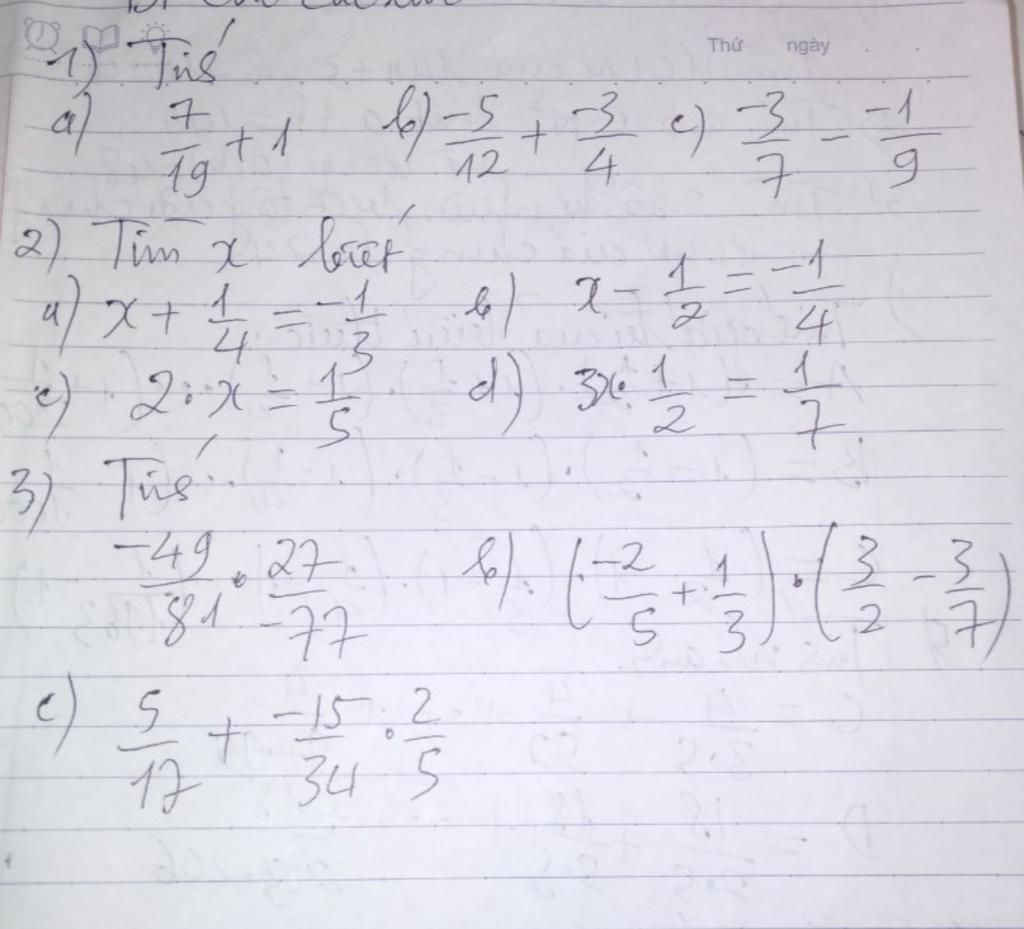 Thứ ngày
1) Tính
a) 7/19 + 1 b) -5/12 + -3/4 c) -3/7 - -1/9
2) Tìm x biết
a) x + 1/4 = -1/3 b) x - 1/2 = -1/4
c) 2 . x = 1/5 d) 3x . 1/2 = 1/7
3) Tính
-49/81 . 27/-77 b) (-2/5 + 1/3) . (3/2 - 3/7)
c) 5/17 + -15/34 . 2/5